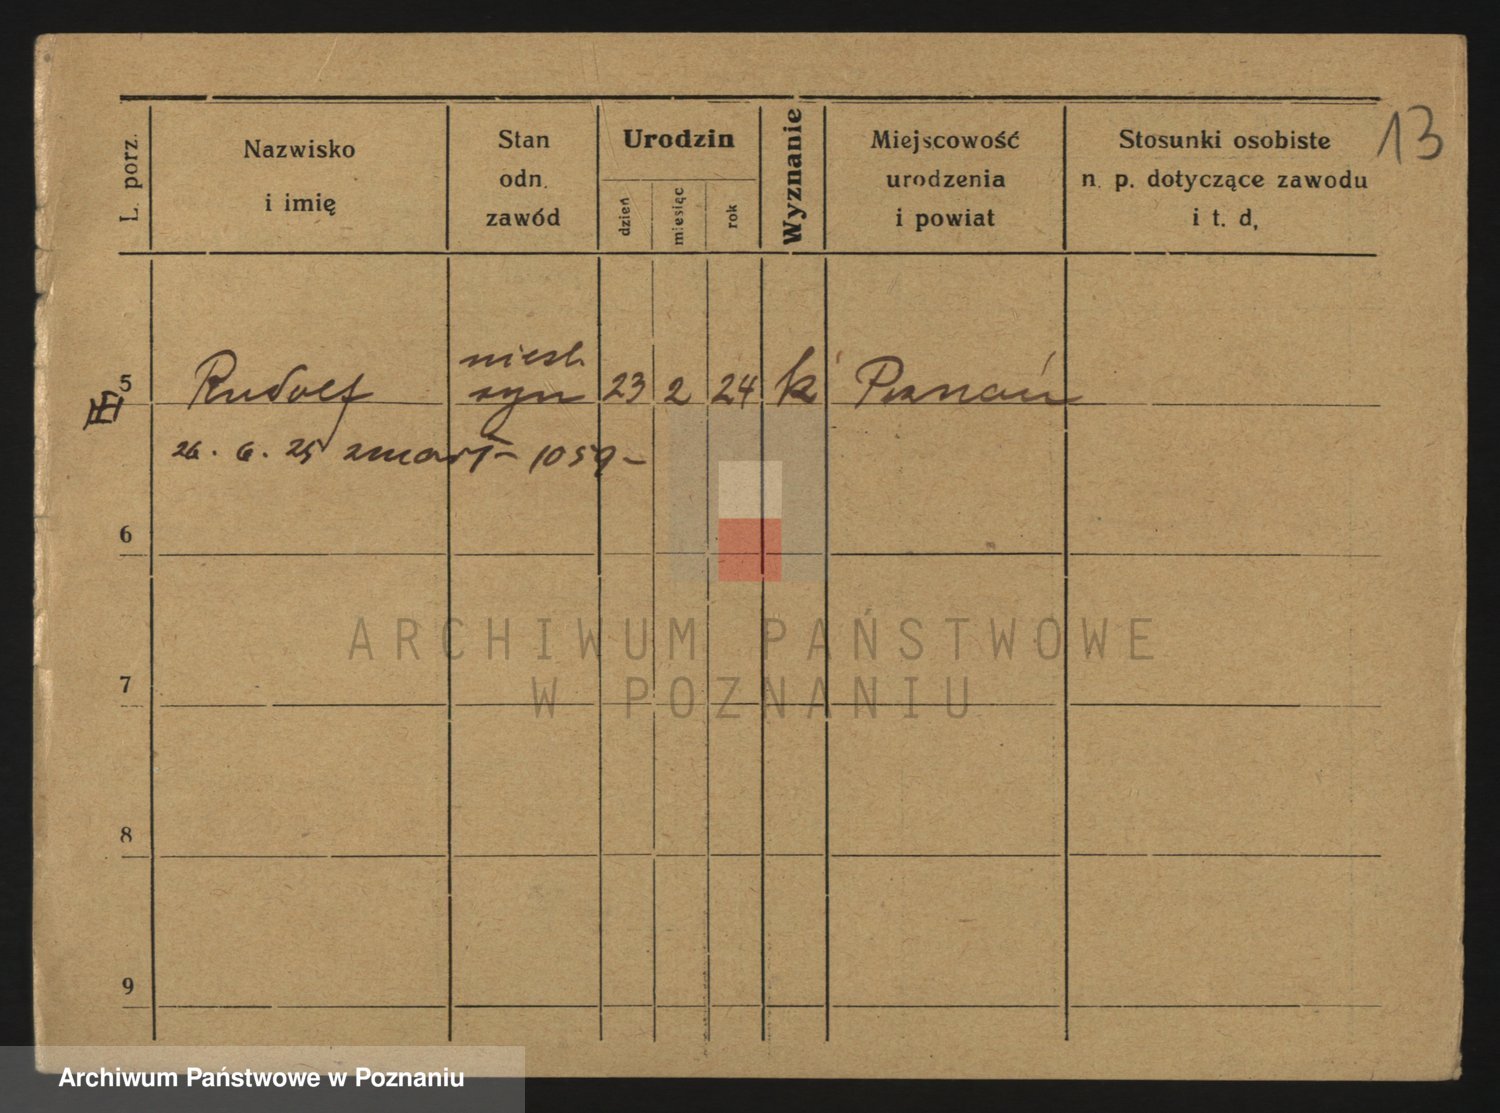 13
L. porz.
Nazwisko
i imię
Stan
odn.
zawód
Urodzin
dzień
miesiąc
rok
Wyznanie
Miejscowość
urodzenia
i powiat
Stosunki osobiste
n. p. dotyczące zawodu
i t. d.
5 Rudolf nieśl. syn 23 2 24 k Poznań
26. 6. 25 zmarł - 1059 -
6
7
8
9
ARCHIWUM PAŃSTWOWE
W POZNANIU
Archiwum Państwowe w Poznaniu